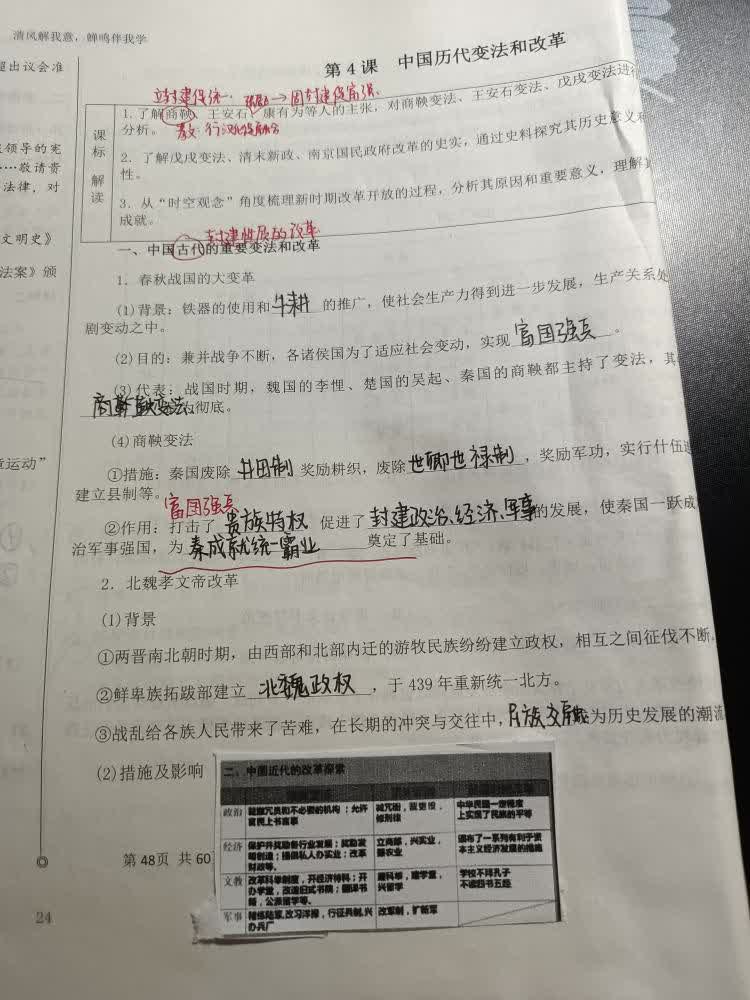 清风解我意，蝉鸣伴我学
提出议会准
领导的宪
……敬请贵
法律，对
文明史》
法案》颁
运动”
24
第4课 中国历代变法和改革
立封建促统一 →固封建促富强
课标解读
1.了解商鞅、王安石、康有为等人的主张，对商鞅变法、王安石变法、戊戌变法进行
分析。
2．了解戊戌变法、清末新政、南京国民政府改革的史实，通过史料探究其历史意义和
性。
3．从“时空观念”角度梳理新时期改革开放的过程，分析其原因和重要意义，理解
成就。
封建性质的改革
一、中国古代的重要变法和改革
1．春秋战国的大变革
(1)背景：铁器的使用和牛耕的推广，使社会生产力得到进一步发展，生产关系处
剧变动之中。
(2)目的：兼并战争不断，各诸侯国为了适应社会变动，实现富国强兵。
(3)代表：战国时期，魏国的李悝、楚国的吴起、秦国的商鞅都主持了变法，其
商鞅变法为彻底。
(4)商鞅变法
①措施：秦国废除井田制奖励耕织，废除世卿世禄制，奖励军功，实行什伍
建立县制等。
富国强兵
②作用：打击了贵族特权促进了封建政治、经济、军事的发展，使秦国一跃成
治军事强国，为秦成就统一霸业奠定了基础。
2．北魏孝文帝改革
(1)背景
①两晋南北朝时期，由西部和北部内迁的游牧民族纷纷建立政权，相互之间征伐不断
②鲜卑族拓跋部建立北魏政权，于439年重新统一北方。
③战乱给各族人民带来了苦难，在长期的冲突与交往中，民族交融成为历史发展的潮
(2)措施及影响
二、中国近代的改革探索
政治 裁撤冗员和不必要的机构；允许
官民上书言事
减冗衙，裁吏役，
修刑律
中华民国一定程度
上实现了民族的平等
经济 保护并奖励各行业发展；奖励发
明创造；提倡私人办实业；改革
财政等。
立商部，兴实业，
振农业
颁布了一系列有利于资
本主义经济发展的措施
文教 改革科举制度，开经济特科；开
办学堂，改造旧式书院；翻译书
籍，公派留学等。
废科举，建学堂，
兴留学
学校不拜孔子
不读四书五经
军事 精练陆军,改习洋操，行征兵制,兴
办兵厂
改军制，扩新军
第48页 共60